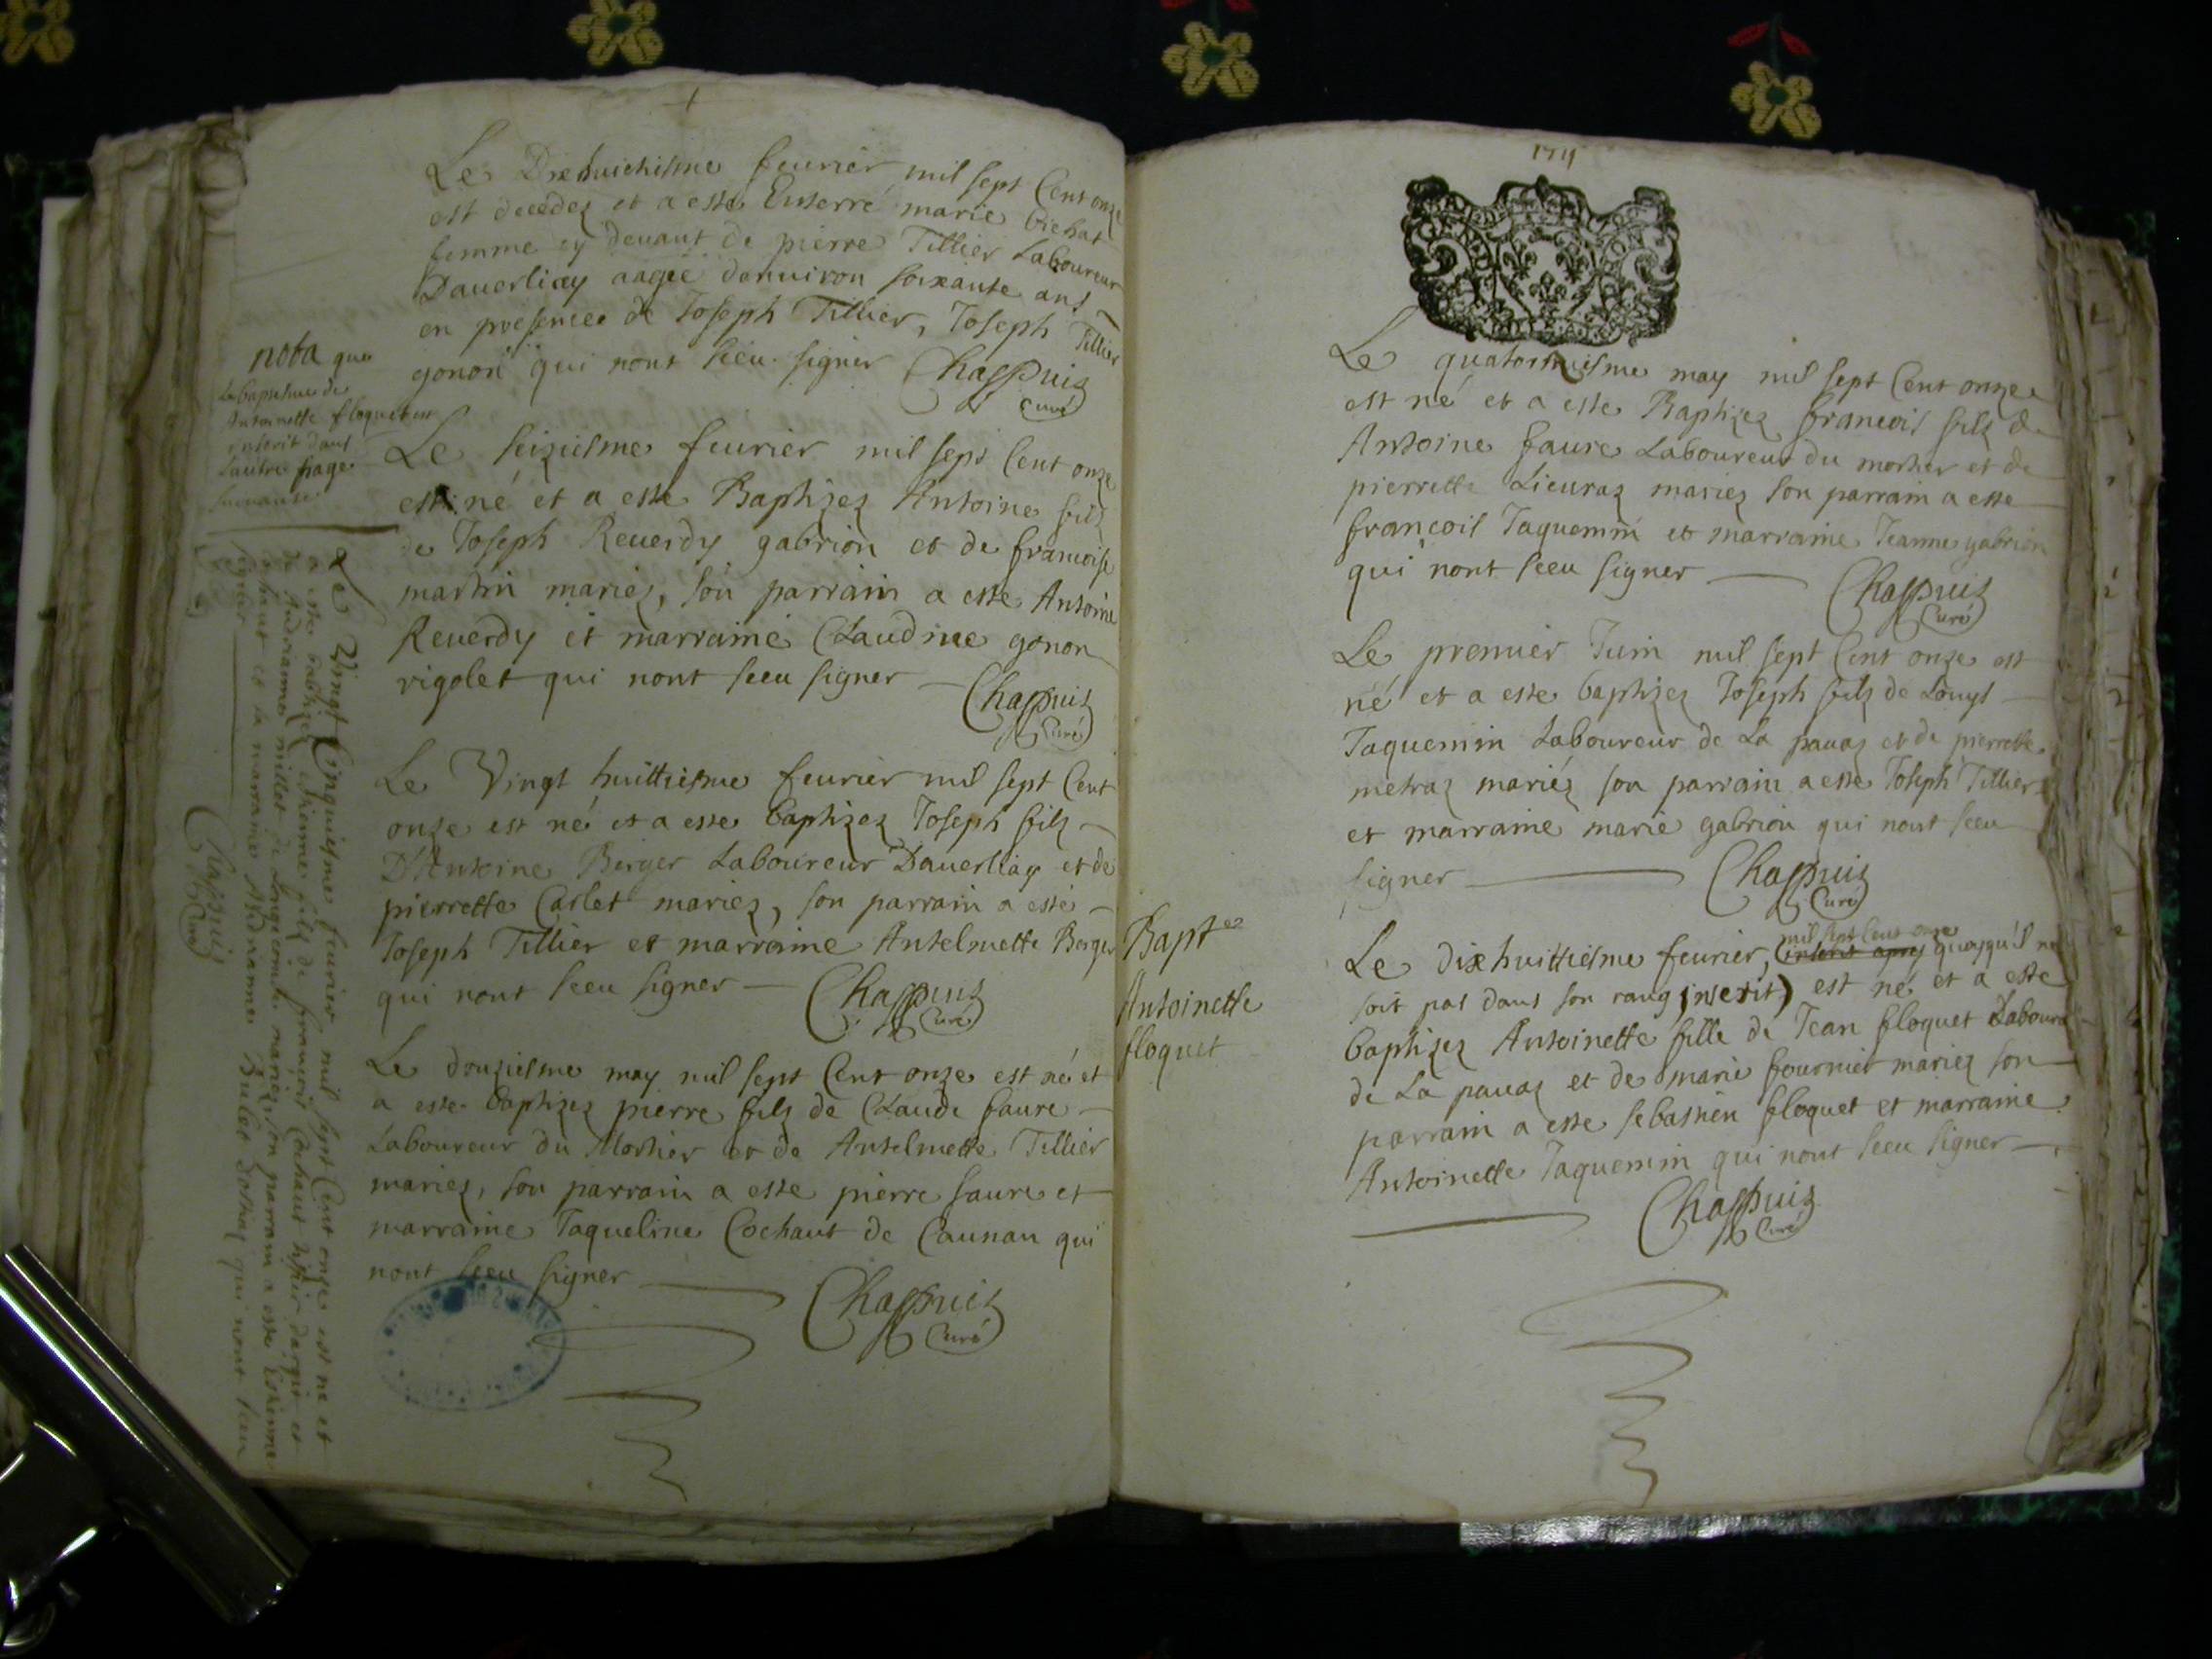 Le Dixhuictiesme feurier mil sept Cent onze
est decedez et a esté Enterré marie Bichat
femme cy deuant de pierre Tillier Laboureur
Dauerliay aagee denuiron soixante ans
en presence de Joseph Tillier, Joseph Tillier
gonon qui nont sceu signer Chappuis
Curé
nota que
Le baptesme de
Antoinette floquet est
inscrit dans
Lautre page
suiuante
Le seiziesme feurier mil sept Cent onze
est né et a esté Baptizez Antoine filz
de Joseph Reuerdy gabrion et de francoise
martin mariez, son parrain a esté Antoine
Reuerdy et marraine Claudine gonon
rigolet qui nont sceu signer Chappuis
Curé
Le Vingt huittiesme feurier mil sept Cent
onze est né et a esté baptizez Joseph filz
D'Antoine Berger Laboureur Dauerliay et de
pierrette Carlet mariez, son parrain a esté
Joseph Tillier et marraine Antelmette Berger
qui nont sceu signer Chappuis
Curé
Le douziesme may mil sept Cent onze est né et
a esté baptizez pierre filz de Claude faure
Laboureur du Mortier et de Antelmette Tillier
mariez, son parrain a esté pierre faure et
marraine Jaqueline Cochaut de Caunan qui
nont sceu signer
Chappuis
Curé
Le Vingt Cinquiesme feurier mil sept Cent onze est né et
a esté baptizez Estienne filz de francois Cochaut et
de Andrianne millet de mariez, son parrain a esté Estienne
Cochaut et sa marraine Andrianne qui nont sceu
signer
Chappuis
Curé
1711
GENERALITE
Le quatorziesme may mil sept Cent onze
est né et a esté Baptizez francois filz de
Antoine faure Laboureur du mortier et de
pierrette Lieuraz mariez son parrain a esté
francois Jaquemin et marraine Jeanne gabrion
qui nont sceu signer
Chappuis
Curé
Le premier Juin mil sept Cent onze est
né et a esté baptizez Joseph filz de Louys
Jaquemin Laboureur de La pauaz et de pierrette
metraz mariéz son parrain a esté Joseph Tillier
et marraine marie gabrion qui nont sceu
signer Chappuis
Curé
Bapt
Antoinette
floquet
mil sept Cent onze
Le dixhuittiesme feurier, (inserit apres quoyqu'il ne
soit pas dans son rang inserit) est né et a esté
baptizez Antoinette fille de Jean floquet Labour
de La pauaz et de marie fournier mariez son
parrain a esté sebastien floquet et marraine
Antoinette Jaquemin qui nont sceu signer
Chappuis
Curé